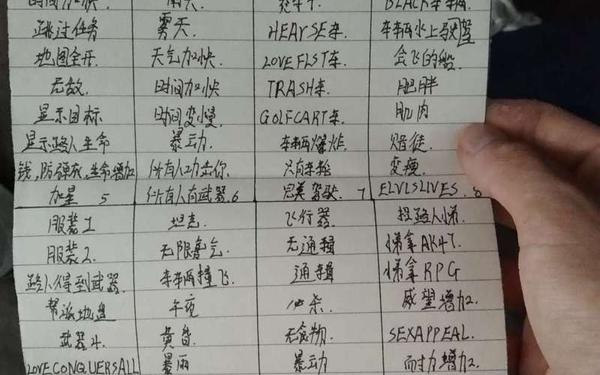 时间加快 雨天 BLACK车
跳过任务 雾天 HEAYSE车 车辆水上驾驶
地图全开 天气加快 LOVEFLST车 会飞的船
无敌 时间加快 TRASH车 肥胖
显示目标 时间变慢 GOLFCART车 肌肉
显示路人生命 暴动 车辆爆炸 赌徒
钱,防弹衣,生命增加 所有人攻击你 只有车轮 变瘦
加星 5 所有人有武器 6 完美驾驶 7 ELVLSLIVES. 8
服装1 坦克 飞行器 招路人小弟
服装2 无限氧气 无通辑 小弟拿AK47
路人得到武器 车辆撞飞 通辑 小弟拿RPG
帮派地盘 午夜 威望增加2
武器4 黄昏 无食物 SEXAPPEAL
LOVECONQUERSALL 暴雨 暴动 耐力增加2